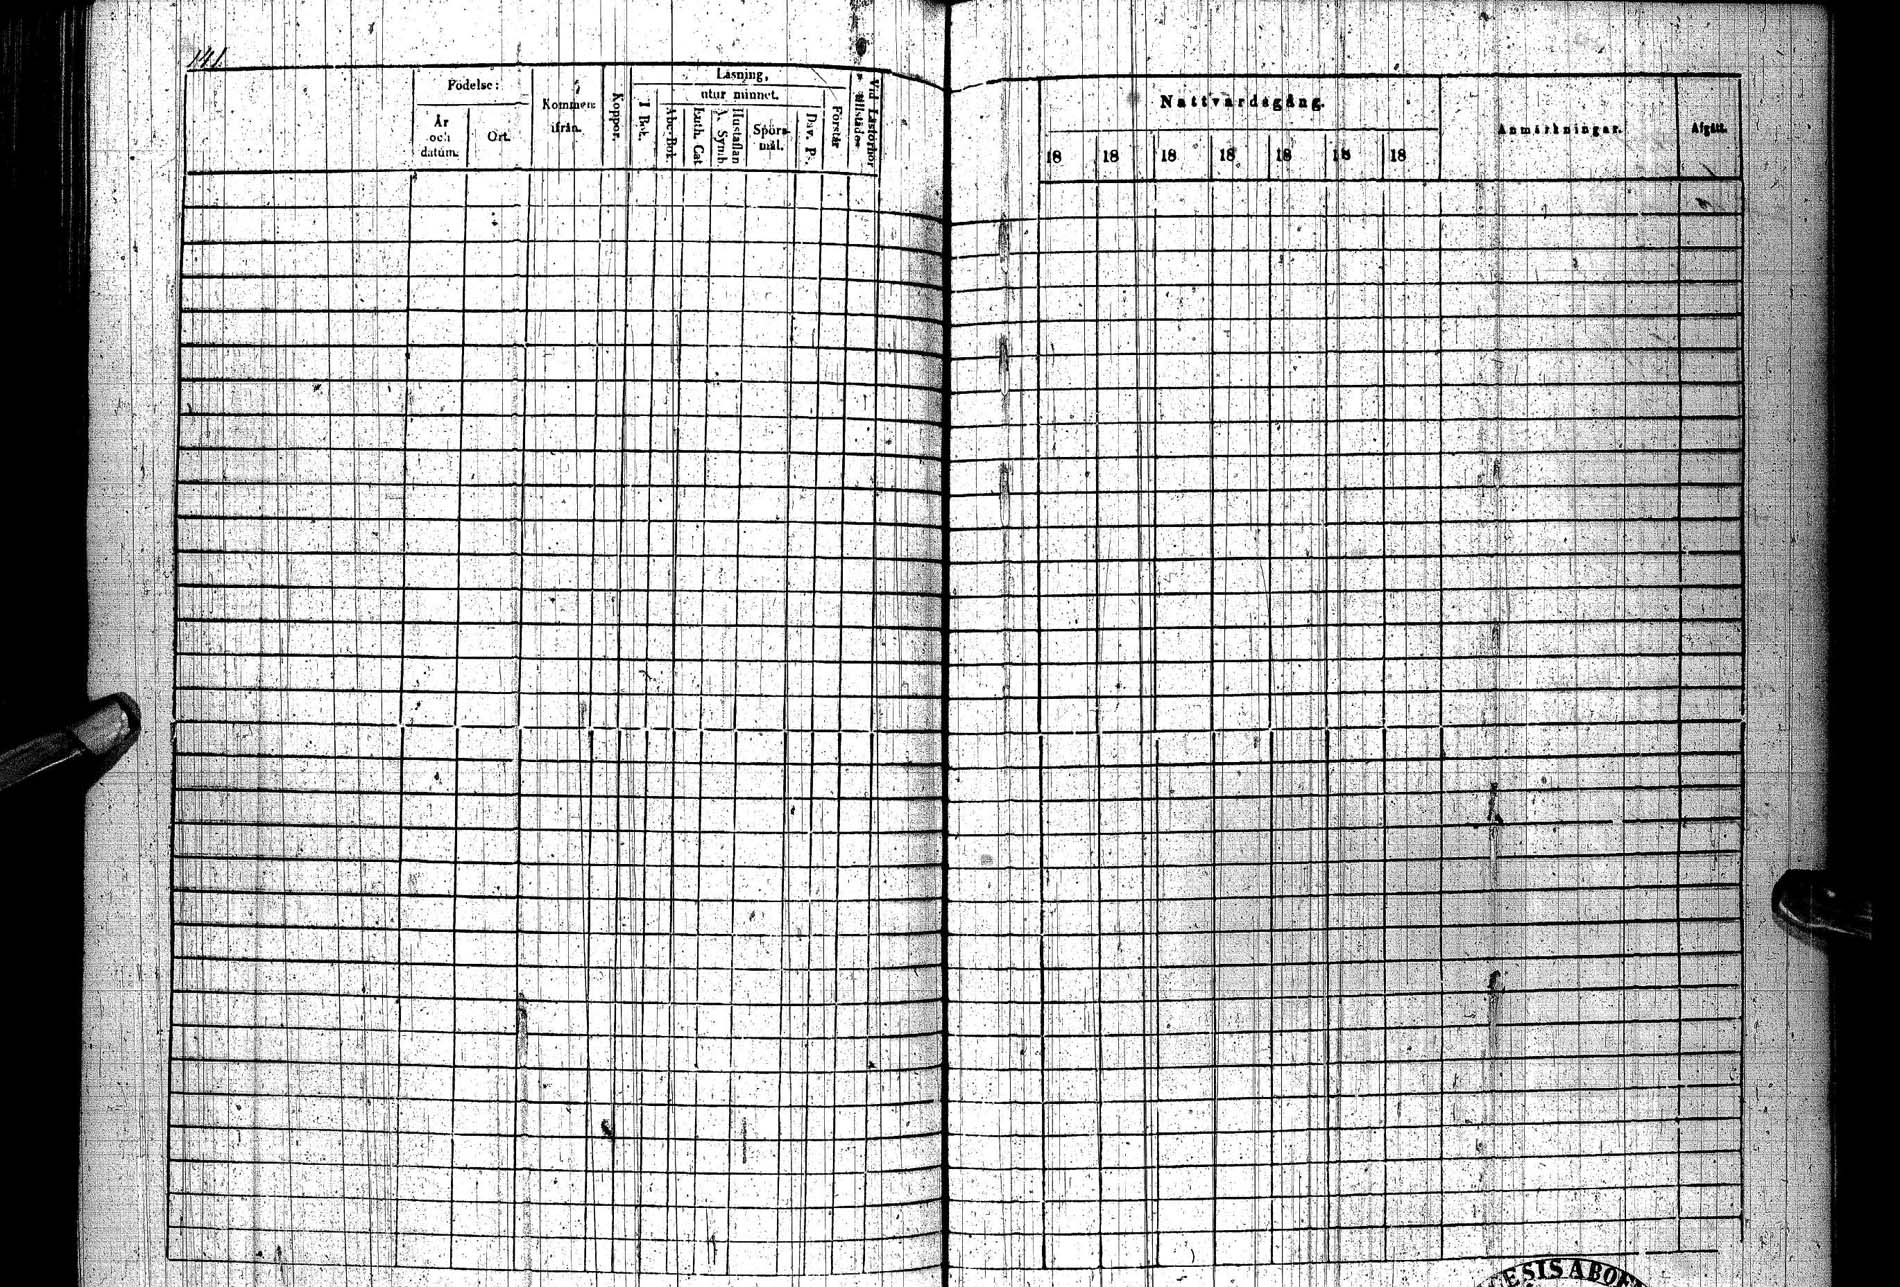 141.
Födelse:
År
och
datum.
Ort.
Kommen
ifrån.
Koppor.
Läsning,
utur minnet.
I Bok.
Abc-Bok.
Luth. Cat.
Hustaflan
A. Symb.
Spörs-
mål.
Dav. Ps.
Förstår
Vid Läsförhör
tillstädes
Nattvardsgång.
18 18 18 18 18 18 18
Anmärkningar.
Afgått.